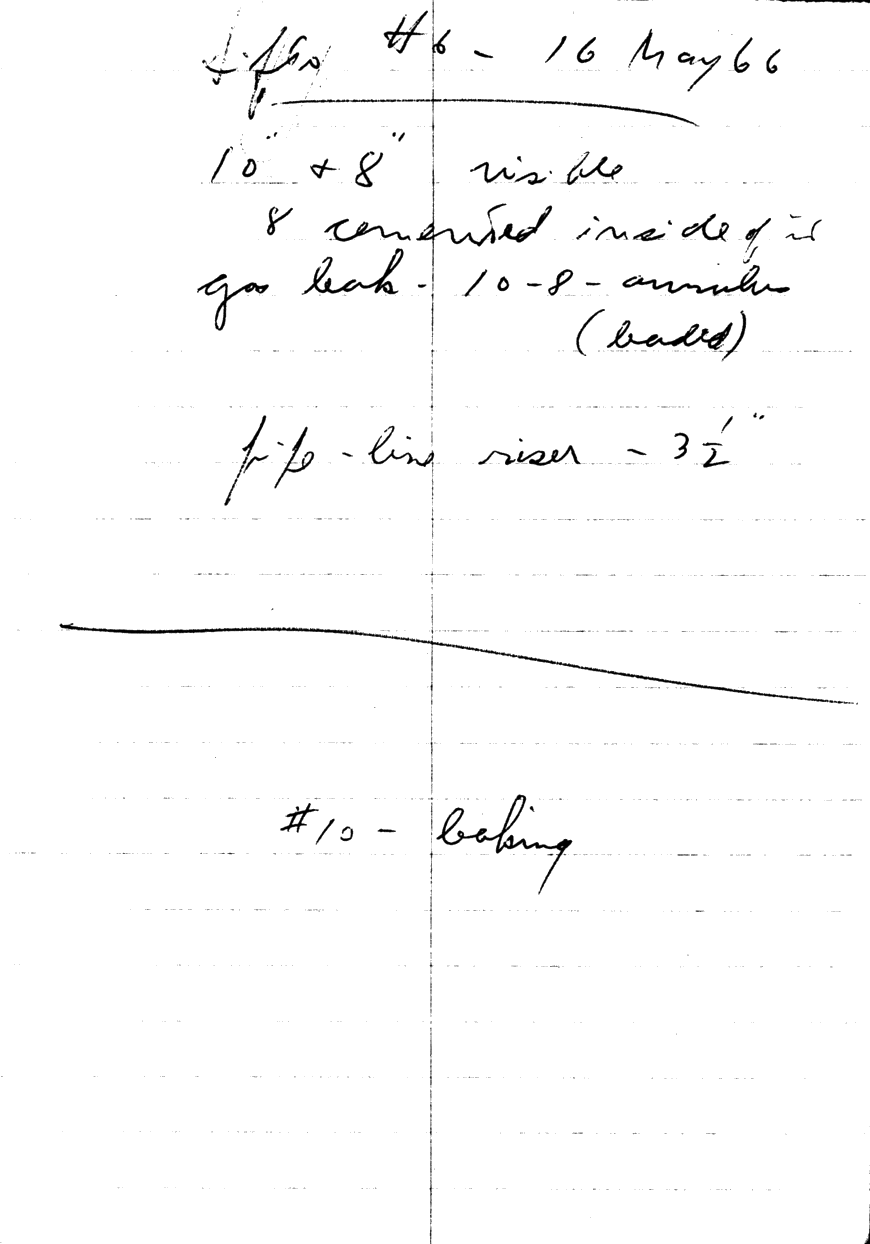 #6 - 16 May 66
10" + 8" visible
8 cemented inside of it
gas leak - 10-8 - annulus
(leaded)
pipe-line riser - 3 1/2"
#10 - leaking